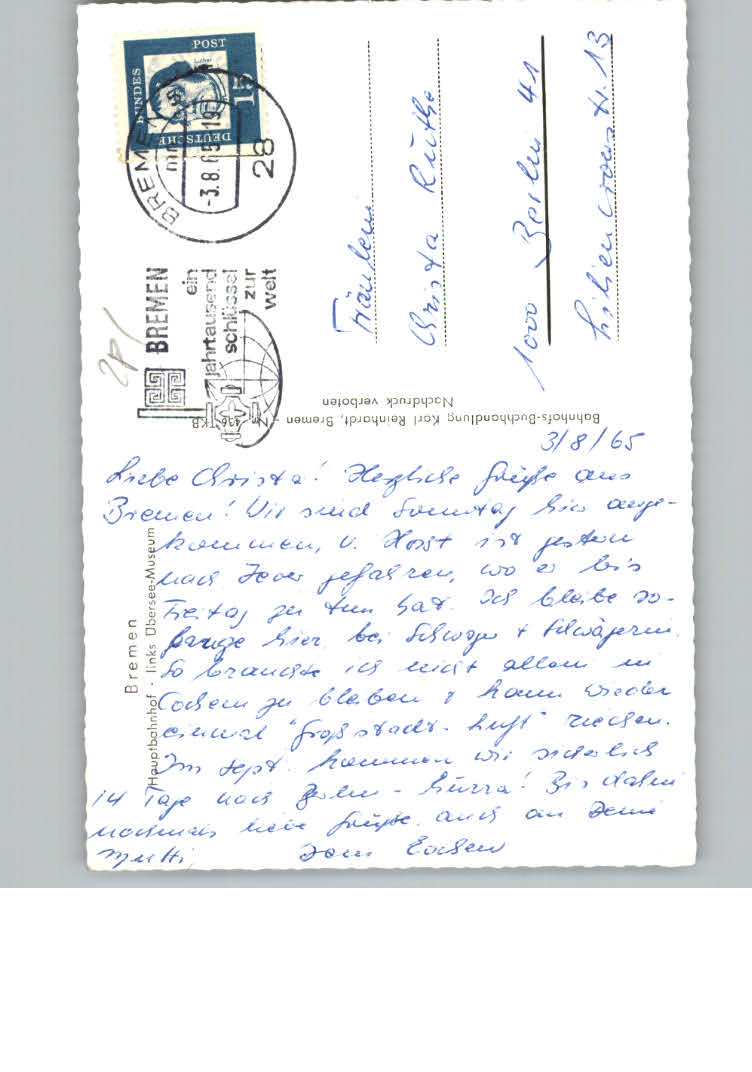 3/8/65
Liebe Christa! Herzliche Grüße aus
Bremen! Wir sind Sonntag hier ange-
kommen, u. Horst ist gestern
nach Jever gefahren, wo er bis
Freitag zu tun hat. Ich bleibe so-
lange hier bei Schwager + Schwägerin.
So brauchte ich nicht allein in
Cochem zu bleiben & kann wieder
einmal "Großstadt-Luft" riechen.
Im Sept. kommen wir sicherlich
14 Tage nach Berlin - hurra! Bis dahin
nochmals liebe Grüße auch an Deine
Mutti,
Fräulein
Christa Ruthe
1000 Berlin 41
13
BUNDES
POST
DEUTSCHE
15
Luther
BREMEN
-3.8.65-19
28
BREMEN
ein
jahrtausend
schlüssel
zur
welt
Bahnhofs-Buchhandlung Karl Reinhardt, Bremen - Nr.
Nachdruck verboten
Bremen
Hauptbahnhof - links Übersee-Museum